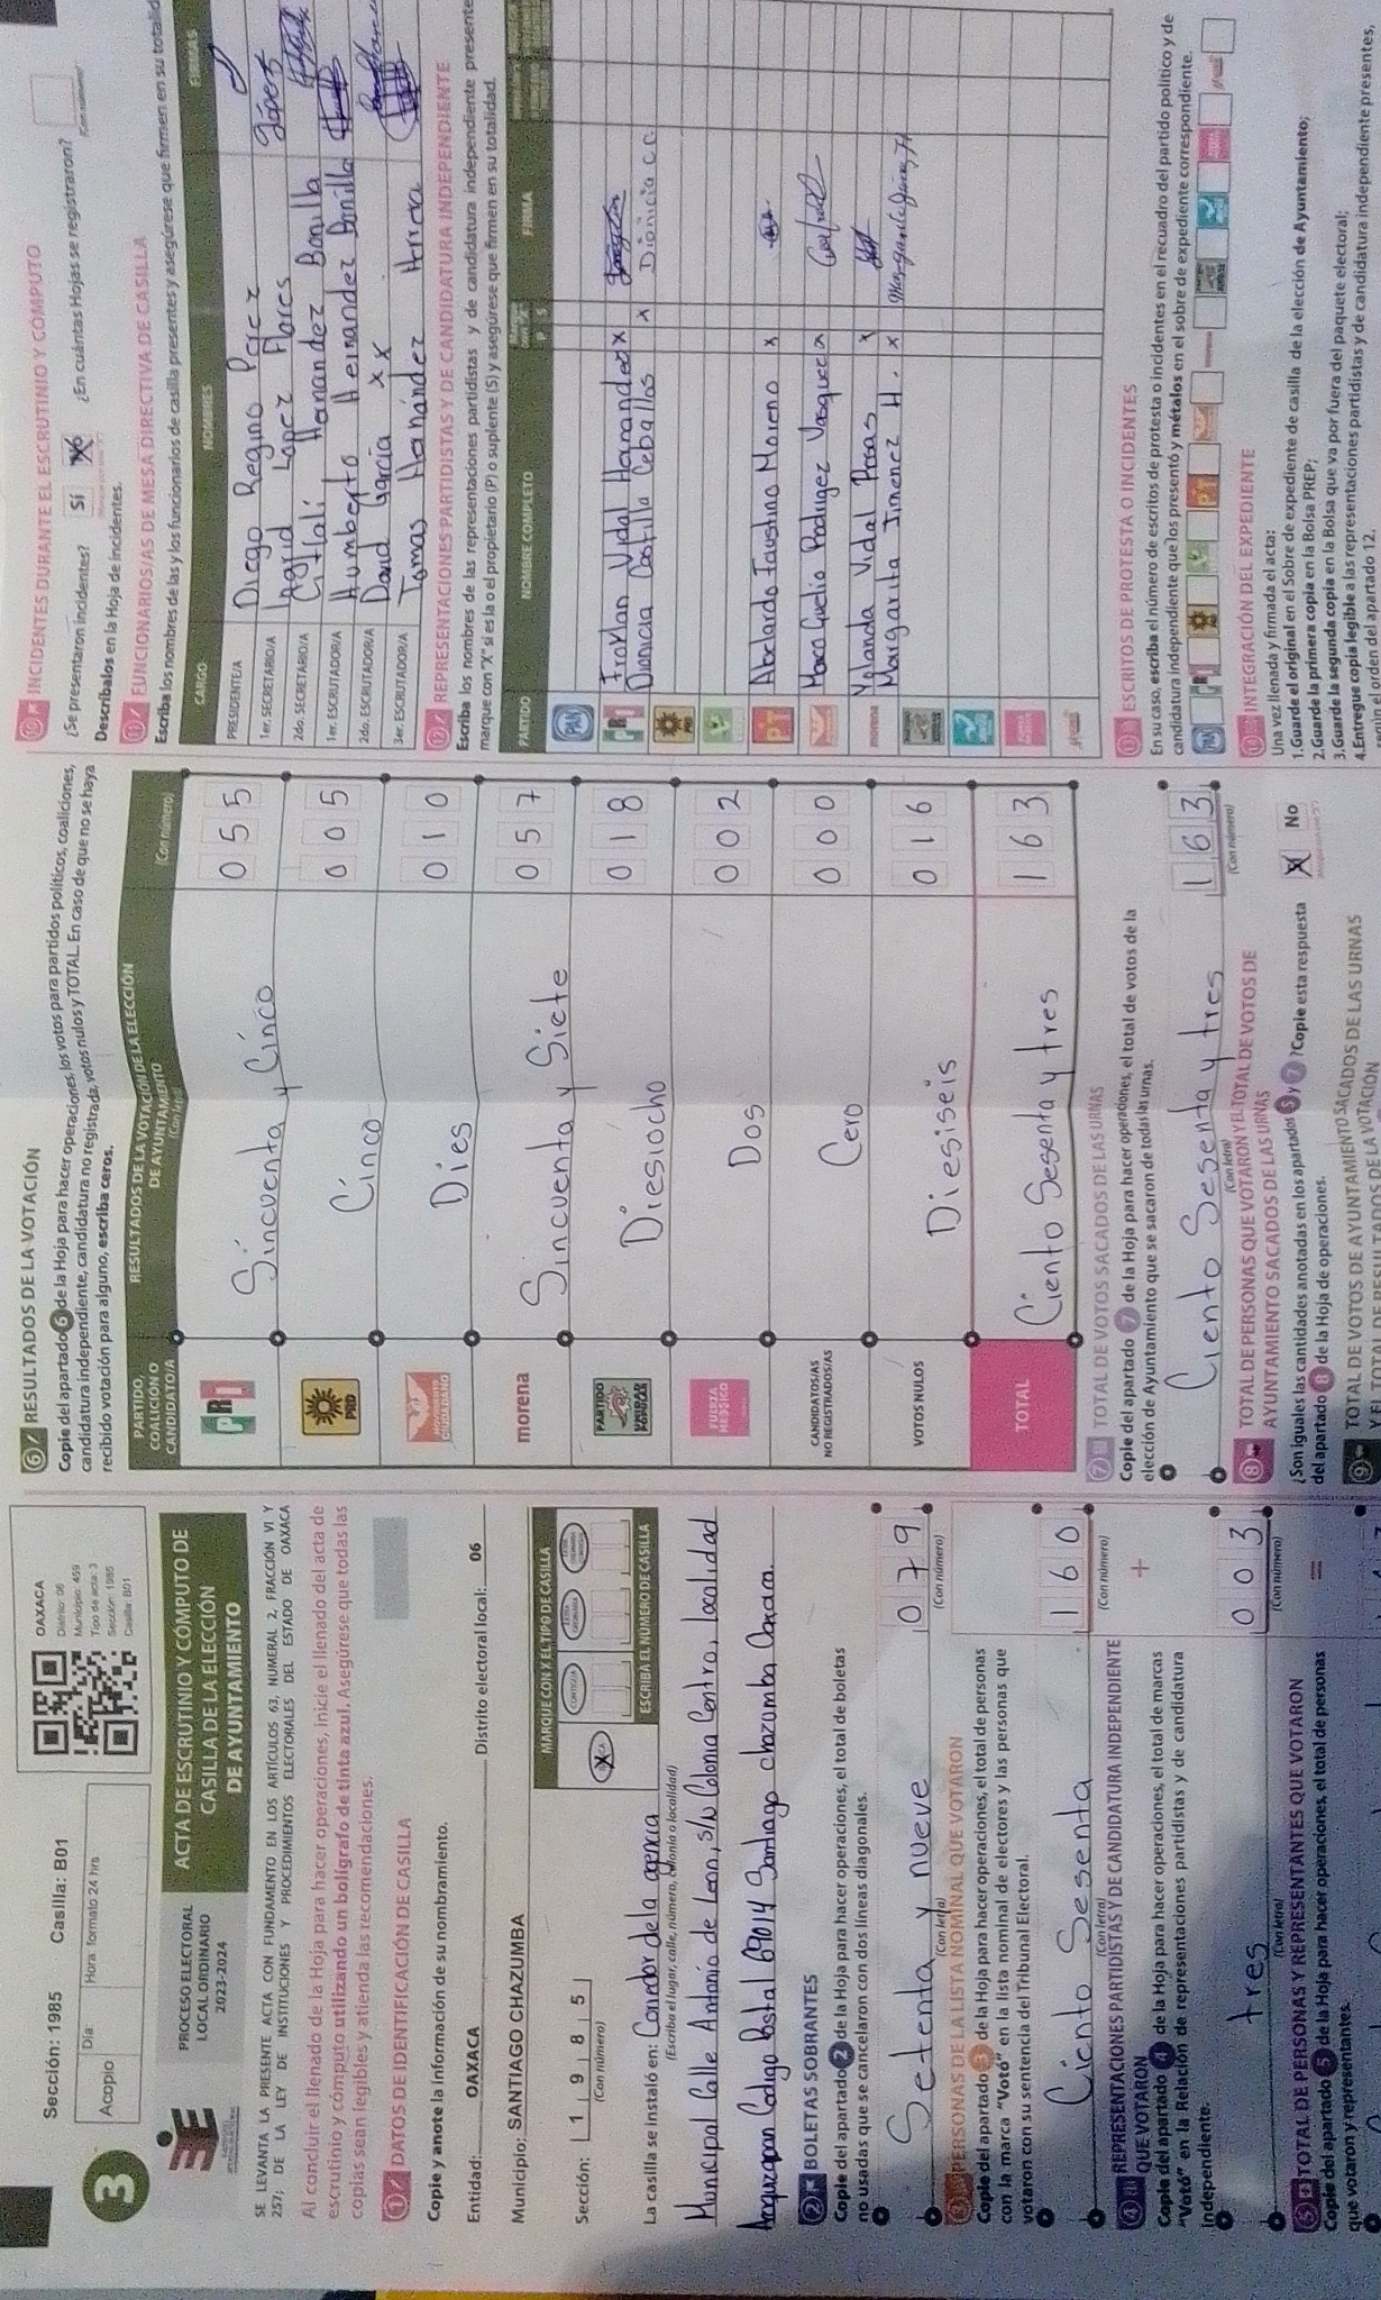 Sección: 1985 Casilla: B01
3
Acopio
Día:
Hora formato 24 hrs
OAXACA
Distrito: 06
Municipio: 459
Tipo de acta: 3
Sección: 1985
Casilla: B01
PROCESO ELECTORAL
LOCAL ORDINARIO
2023-2024
ACTA DE ESCRUTINIO Y CÓMPUTO DE
CASILLA DE LA ELECCIÓN
DE AYUNTAMIENTO
SE LEVANTA LA PRESENTE ACTA CON FUNDAMENTO EN LOS ARTÍCULOS 63, NUMERAL 2, FRACCIÓN VI Y
257; DE LA LEY DE INSTITUCIONES Y PROCEDIMIENTOS ELECTORALES DEL ESTADO DE OAXACA
Al concluir el llenado de la Hoja para hacer operaciones, inicie el llenado del acta de
escrutinio y cómputo utilizando un bolígrafo de tinta azul. Asegúrese que todas las
copias sean legibles y atienda las recomendaciones.
1 DATOS DE IDENTIFICACIÓN DE CASILLA
Copie y anote la información de su nombramiento.
Entidad: OAXACA Distrito electoral local: 06
Municipio: SANTIAGO CHAZUMBA
MARQUE CON X EL TIPO DE CASILLA
Sección: 1 9 8 5
(Con número)
X
ESCRIBA EL NÚMERO DE CASILLA
La casilla se instaló en: Corredor de la agencia
(Escriba el lugar, calle, número, colonia o localidad)
Municipal Calle Antonio de Leon, S/N Colonia Centro, localidad
Acaquizapan Codigo Postal 69014 Santiago chazumba Oaxaca.
2 BOLETAS SOBRANTES
Copie del apartado 2 de la Hoja para hacer operaciones, el total de boletas
no usadas que se cancelaron con dos líneas diagonales.
Setenta y nueve 079
(Con letra) (Con número)
3 PERSONAS DE LA LISTA NOMINAL QUE VOTARON
Copie del apartado 3 de la Hoja para hacer operaciones, el total de personas
con la marca "Votó" en la lista nominal de electores y las personas que
votaron con su sentencia del Tribunal Electoral.
Ciento Sesenta 160
(Con letra) (Con número)
4 REPRESENTACIONES PARTIDISTAS Y DE CANDIDATURA INDEPENDIENTE
QUE VOTARON
+
Copie del apartado 4 de la Hoja para hacer operaciones, el total de marcas
"Votó" en la Relación de representaciones partidistas y de candidatura
independiente.
tres 003
(Con letra) (Con número)
5 TOTAL DE PERSONAS Y REPRESENTANTES QUE VOTARON
=
Copie del apartado 5 de la Hoja para hacer operaciones, el total de personas
que votaron y representantes.
6 RESULTADOS DE LA VOTACIÓN
Copie del apartado 6 de la Hoja para hacer operaciones, los votos para partidos políticos, coaliciones,
candidatura independiente, candidatura no registrada, votos nulos y TOTAL. En caso de que no se haya
recibido votación para alguno, escriba ceros.
PARTIDO,
COALICIÓN O
CANDIDATO/A
RESULTADOS DE LA VOTACIÓN DE LA ELECCIÓN
DE AYUNTAMIENTO
(Con letra)
(Con número)
PRI Sincuenta y Cinco 055
PRD Cinco 005
MOVIMIENTO CIUDADANO Dies 010
morena Sincuenta y Siete 057
PARTIDO UNIDAD POPULAR Diesiocho 018
FUERZA MÉXICO Dos 002
CANDIDATOS/AS
NO REGISTRADOS/AS Cero 000
VOTOS NULOS Diesiseis 016
TOTAL Ciento Sesenta y tres 163
7 TOTAL DE VOTOS SACADOS DE LAS URNAS
Copie del apartado 7 de la Hoja para hacer operaciones, el total de votos de la
elección de Ayuntamiento que se sacaron de todas las urnas.
Ciento Sesenta y tres 163
(Con letra) (Con número)
8 TOTAL DE PERSONAS QUE VOTARON Y EL TOTAL DE VOTOS DE
AYUNTAMIENTO SACADOS DE LAS URNAS
¿Son iguales las cantidades anotadas en los apartados 5 y 7 ? Copie esta respuesta
del apartado 8 de la Hoja de operaciones.
X No
9 TOTAL DE VOTOS DE AYUNTAMIENTO SACADOS DE LAS URNAS
Y EL TOTAL DE RESULTADOS DE LA VOTACIÓN
10 INCIDENTES DURANTE EL ESCRUTINIO Y CÓMPUTO
¿Se presentaron incidentes? Sí No ¿En cuántas Hojas se registraron?
(Con número)
Descríbalos en la Hoja de incidentes.
11 FUNCIONARIOS/AS DE MESA DIRECTIVA DE CASILLA
Escriba los nombres de las y los funcionarios de casilla presentes y asegúrese que firmen en su totalid
CARGO NOMBRES FIRMAS
PRESIDENTE/A Diego Regino Perez
1er. SECRETARIO/A Ingrid Lopez Flores López F
2do. SECRETARIO/A Citlali Hernandez Bonilla
1er. ESCRUTADOR/A Humberto Hernandez Bonilla
2do. ESCRUTADOR/A David Garcia x x
3er. ESCRUTADOR/A Tomas Hernández Herrera
12 REPRESENTACIONES PARTIDISTAS Y DE CANDIDATURA INDEPENDIENTE
Escriba los nombres de las representaciones partidistas y de candidatura independiente presente
marque con "X" si es la o el propietario (P) o suplente (S) y asegúrese que firmen en su totalidad.
PARTIDO NOMBRE COMPLETO P S FIRMA
PAN
PRI Froylan Vidal Hernandez x
Dionicia Castillo Ceballos x Dionicia C C
PRD
PT Abelardo Faustino Moreno x
Marco Aurelio Rodriguez Vasquez x
morena Yolanda Vidal Rosas x
Margarita Jimenez H. x
13 ESCRITOS DE PROTESTA O INCIDENTES
En su caso, escriba el número de escritos de protesta o incidentes en el recuadro del partido político y de
candidatura independiente que los presentó y métalos en el sobre de expediente correspondiente.
PAN PRI PT morena
14 INTEGRACIÓN DEL EXPEDIENTE
Una vez llenada y firmada el acta:
1.Guarde el original en el Sobre de expediente de casilla de la elección de Ayuntamiento;
2.Guarde la primera copia en la Bolsa PREP;
3.Guarde la segunda copia en la Bolsa que va por fuera del paquete electoral;
4.Entregue copia legible a las representaciones partidistas y de candidatura independiente presentes,
según el orden del apartado 12.